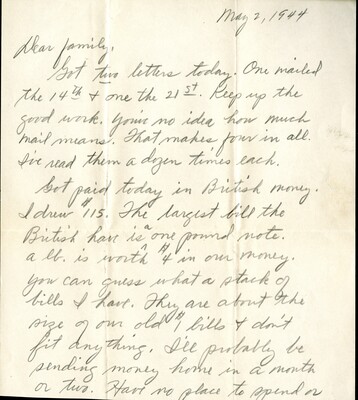 May 2, 1944
Dear family,
Got two letters today. One mailed
the 14th & one the 21st. Keep up the
good work. You've no idea how much
mail means. That makes four in all.
I've read them a dozen times each.
Got paid today in British money.
I drew $115. The largest bill the
British have is a one pound note.
a lb. is worth $4 in our money.
You can guess what a stack of
bills I have. They are about the
size of our old $1 bills & don't
fit anything. I'll probably be
sending money home in a month
or two. Have no place to spend or